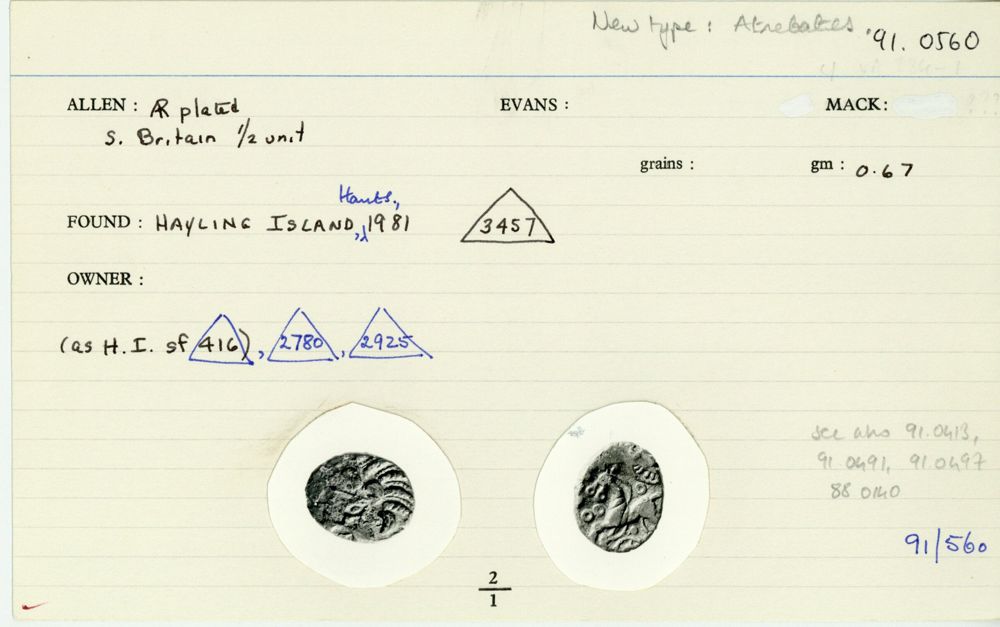 New type: Atrebates '91. 0560
ALLEN : AR plated EVANS : MACK:
S. Britain 1/2 unit
grains : gm : 0.67
Hants,
FOUND : HAYLING ISLAND, 1981 3457
OWNER :
(as H. I. sf 416), 2780, 2925
see also 91.0413,
91 0491, 91.0497
88 0140
91/560
2
1